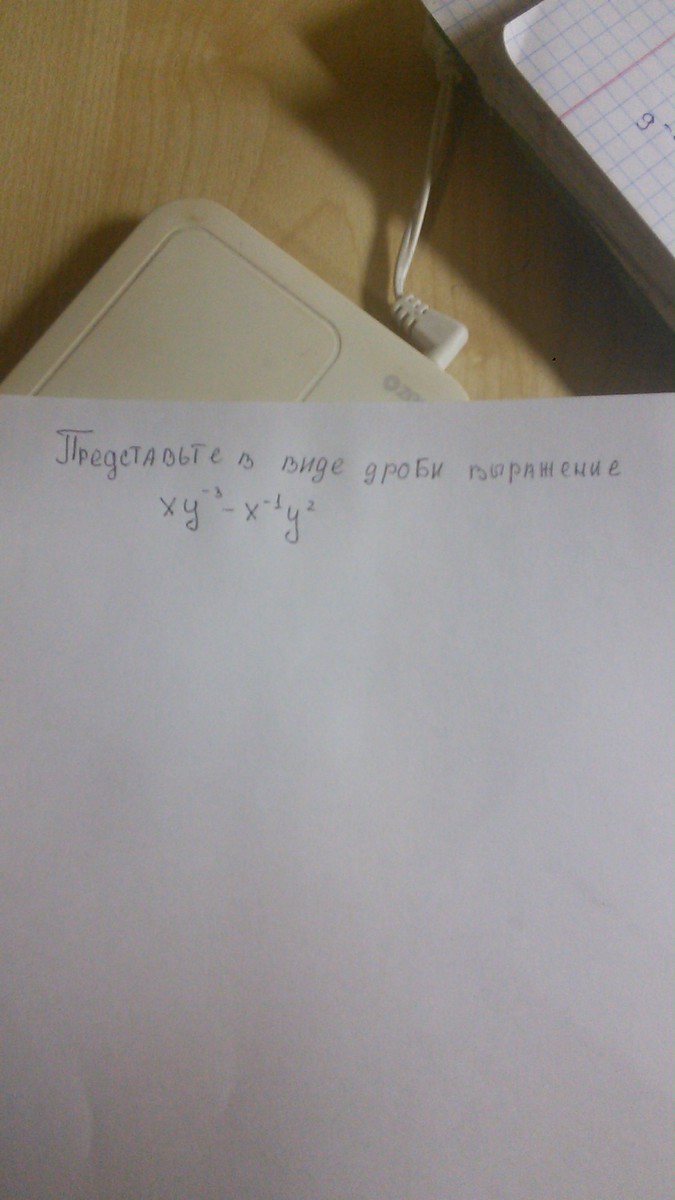 Представьте в виде дроби выражение
xy⁻³ - x⁻¹y²